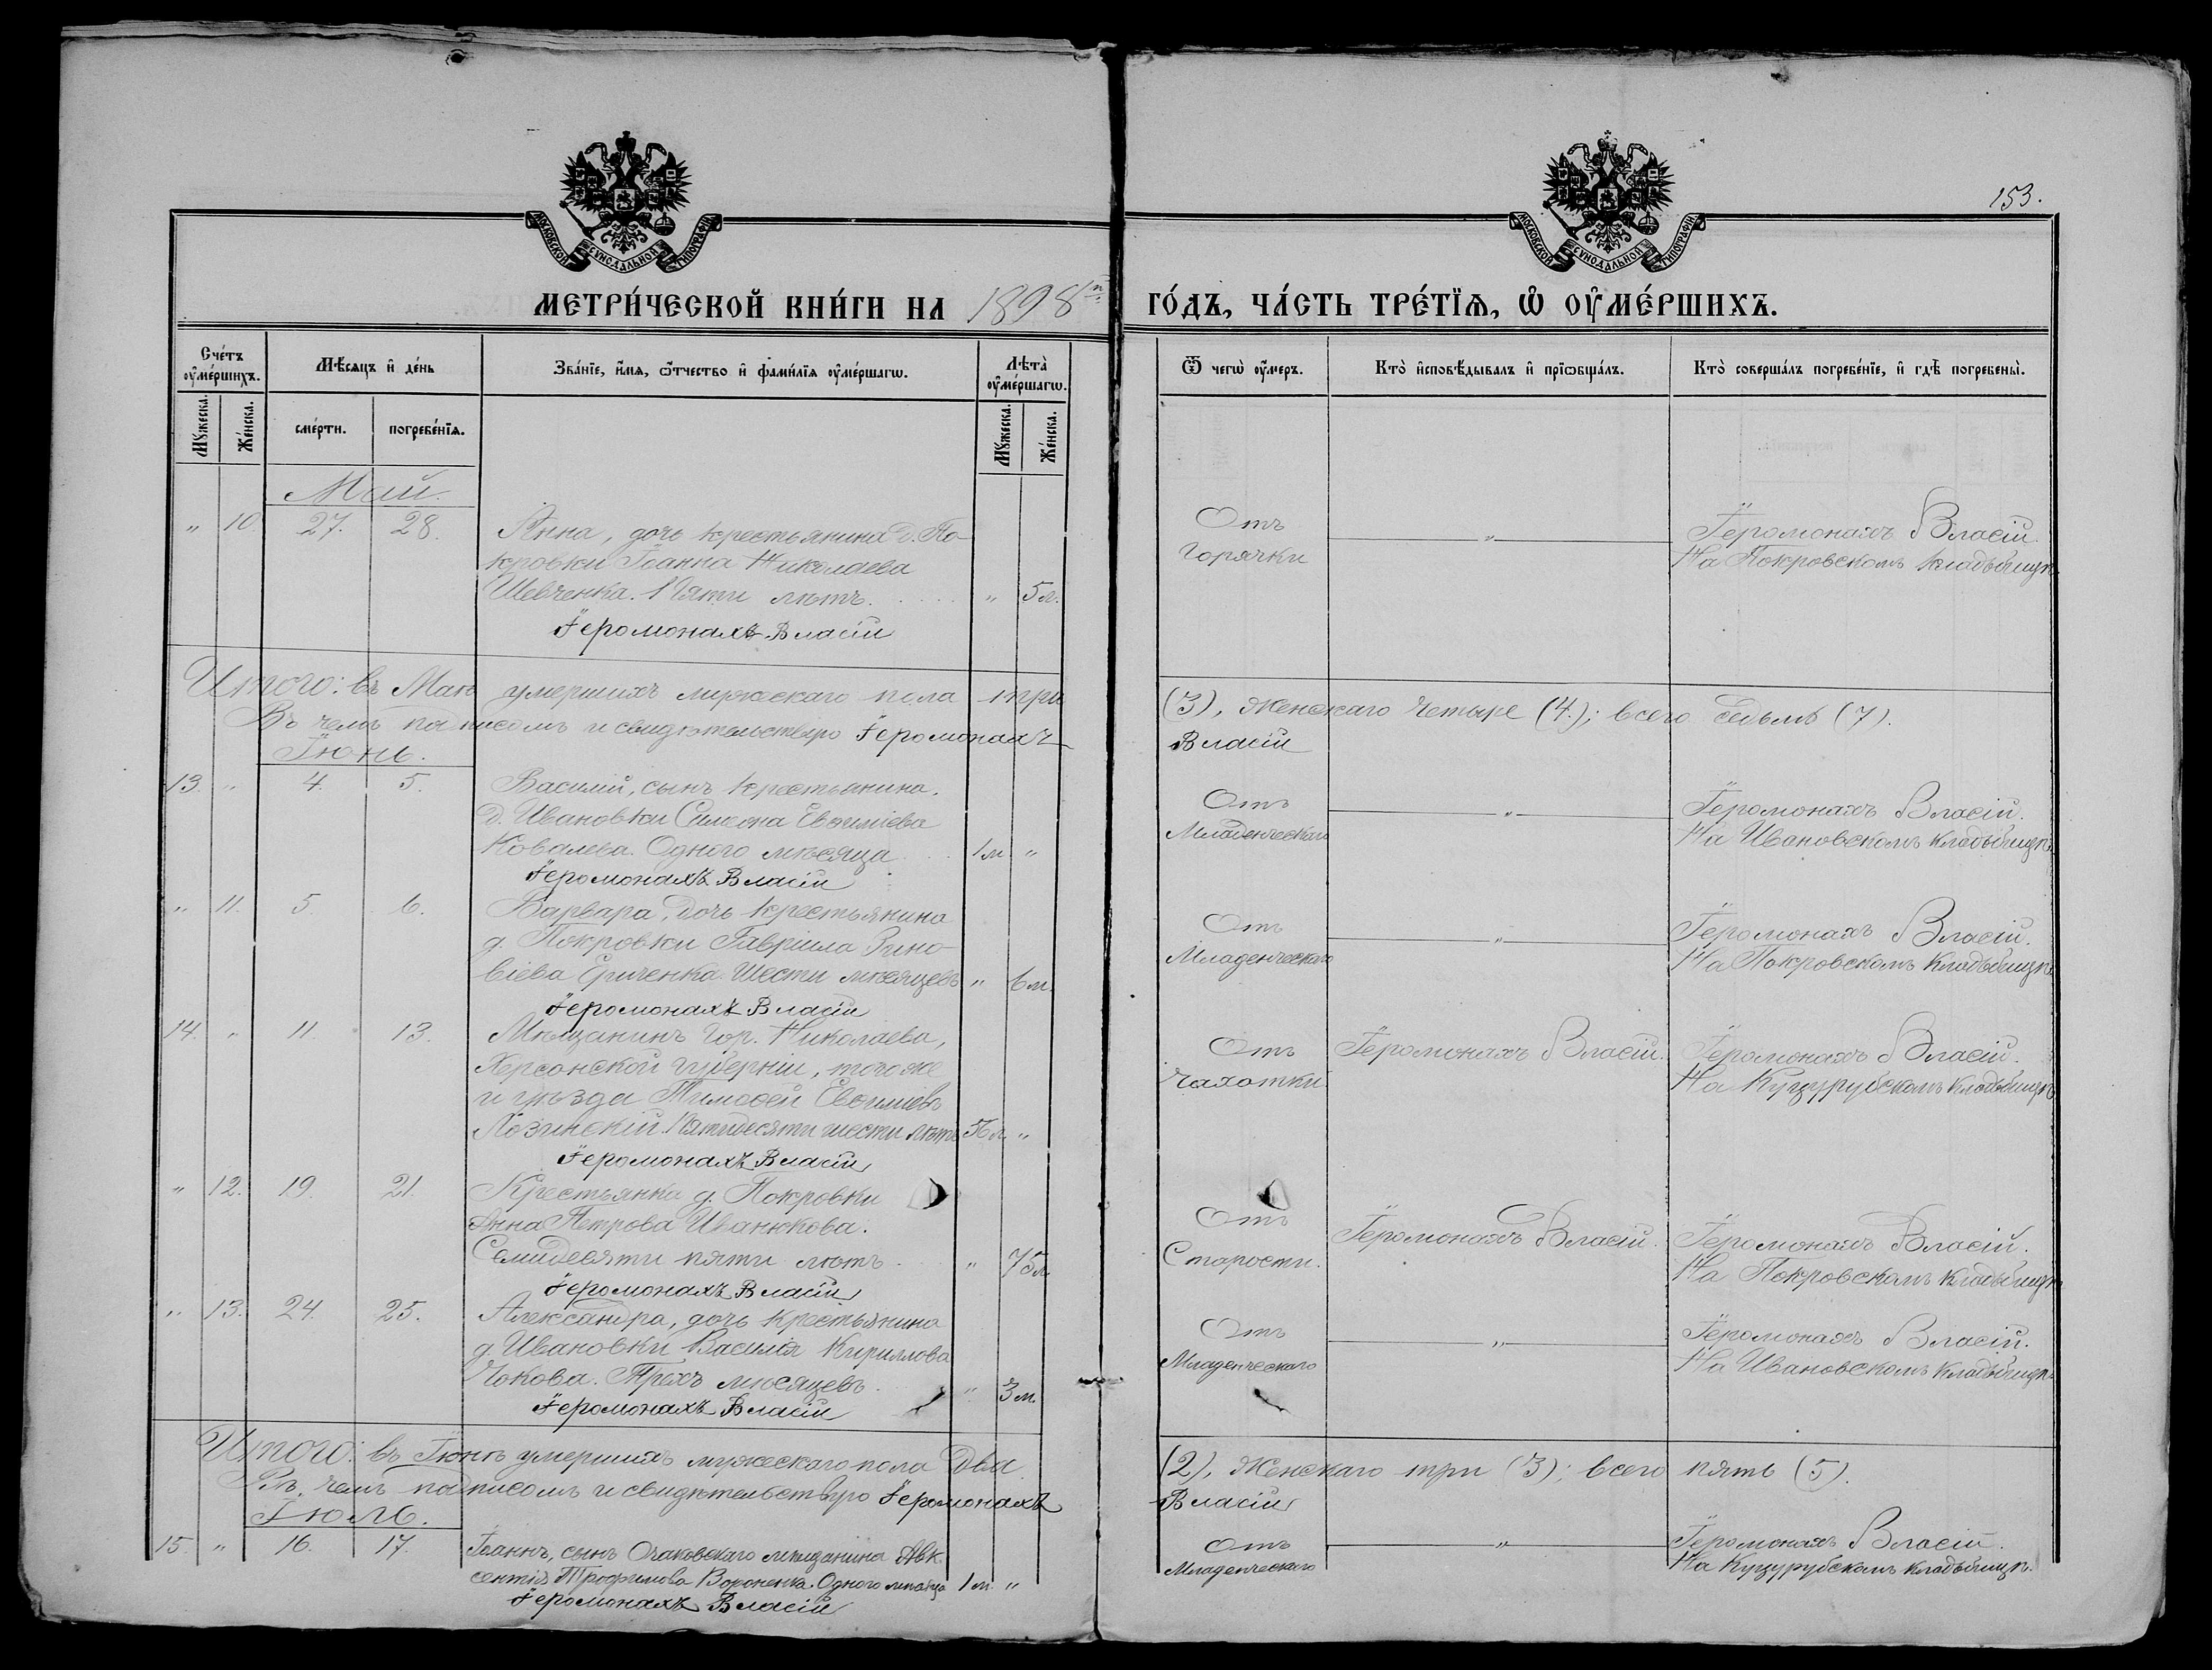 153.
МОСКОВСКОЙ СѴНОДАЛЬНОЙ ТИПОГРАФІИ
МОСКОВСКОЙ СѴНОДАЛЬНОЙ ТИПОГРАФІИ
МЕТРИ́ЧЕСКОЙ КНИ́ГИ НА 1898й
ГО́ДЪ, ЧА́СТЬ ТРЕ́ТЇѦ, Ѡ҆ ОУ҆МЕ́РШИХЪ.
Сче́тъ оу҆ме́ршихъ.
Мѣ́сяцъ и҆ де́нь
Зва́нїе, и҆́мѧ, ѻ҆́тчество и҆ фами́лїѧ оу҆ме́ршагѡ.
Лѣ́та оу҆ме́ршагѡ.
Ѿ чегѡ̀ оу҆́меръ.
Кто̀ и҆сповѣ́дывалъ и҆ прїѡбща́лъ.
Кто̀ соверша́лъ погребе́нїе, и҆ гдѣ̀ погребены̀.
Мꙋ́жеска.
Же́нска.
сме́рти.
погребе́нїѧ.
Мꙋ́жеска.
Же́нска.
Май.
" 10 27. 28. Анна, дочь крестьянина д. По-
кровки Іоанна Николаева
Шевченка. Пяти лѣтъ. " 5 л.
Іеромонахъ Власій
Отъ
Горячки
"
Іеромонахъ Власій.
На Покровскомъ кладбищѣ.
Итого: въ Маѣ умершихъ мужескаго пола три
(3), женскаго четыре (4.); всего седьмъ (7).
Въ чемъ подписомъ и свидѣтельствую Іеромонахъ
Власій
Іюнь.
13. " 4. 5. Василій, сынъ крестьянина.
д. Ивановки Симеона Евѳиміева
Ковалева. Одного мѣсяца 1 м. "
Іеромонахъ Власій
Отъ
Младенческаго
"
Іеромонахъ Власій.
На Ивановскомъ кладбищѣ.
" 11. 5. 6. Варвара, дочь крестьянина
д. Покровки Гавріила Зино-
віева Шести мѣсяцевъ " 6 м.
Іеромонахъ Власій
Отъ
Младенческаго
"
Іеромонахъ Власій.
На Покровскомъ кладбищѣ.
14. " 11. 13. Мѣщанинъ гор. Николаева,
Херсонской губерніи, того же
и уѣзда Тимоѳей Евѳиміевъ
Лозинскій. Пятидесяти шести лѣтъ 56 л. "
Іеромонахъ Власій
Отъ
Чахотки.
Іеромонахъ Власій.
Іеромонахъ Власій.
На Куцурубскомъ кладбищѣ.
" 12. 19. 21. Крестьянка д. Покровки
Анна Петрова Иванюкова.
Семидесяти пяти лѣтъ. " 75 л.
Іеромонахъ Власій
Отъ
Старости.
Іеромонахъ Власій.
Іеромонахъ Власій.
На Покровскомъ кладбищѣ
" 13. 24. 25. Александра, дочь крестьянина
д. Ивановки Василія Кириллова
Чокова. Трехъ мѣсяцевъ. " 3 м.
Іеромонахъ Власій
Отъ
Младенческаго
"
Іеромонахъ Власій.
На Ивановскомъ кладбищѣ.
Итого: въ Іюнѣ умершихъ мужескаго пола два
(2), женскаго три (3); всего пять (5).
Въ чемъ подписомъ и свидѣтельствую Іеромонахъ
Власій
Іюль.
15. " 16. 17. Іоаннъ, сынъ Очаковскаго мѣщанина Авк-
сентія Трофимова Вороненка. Одного мѣсяца 1 м. "
Іеромонахъ Власій
Отъ
Младенческаго
"
Іеромонахъ Власій.
На Куцурубскомъ кладбищѣ.